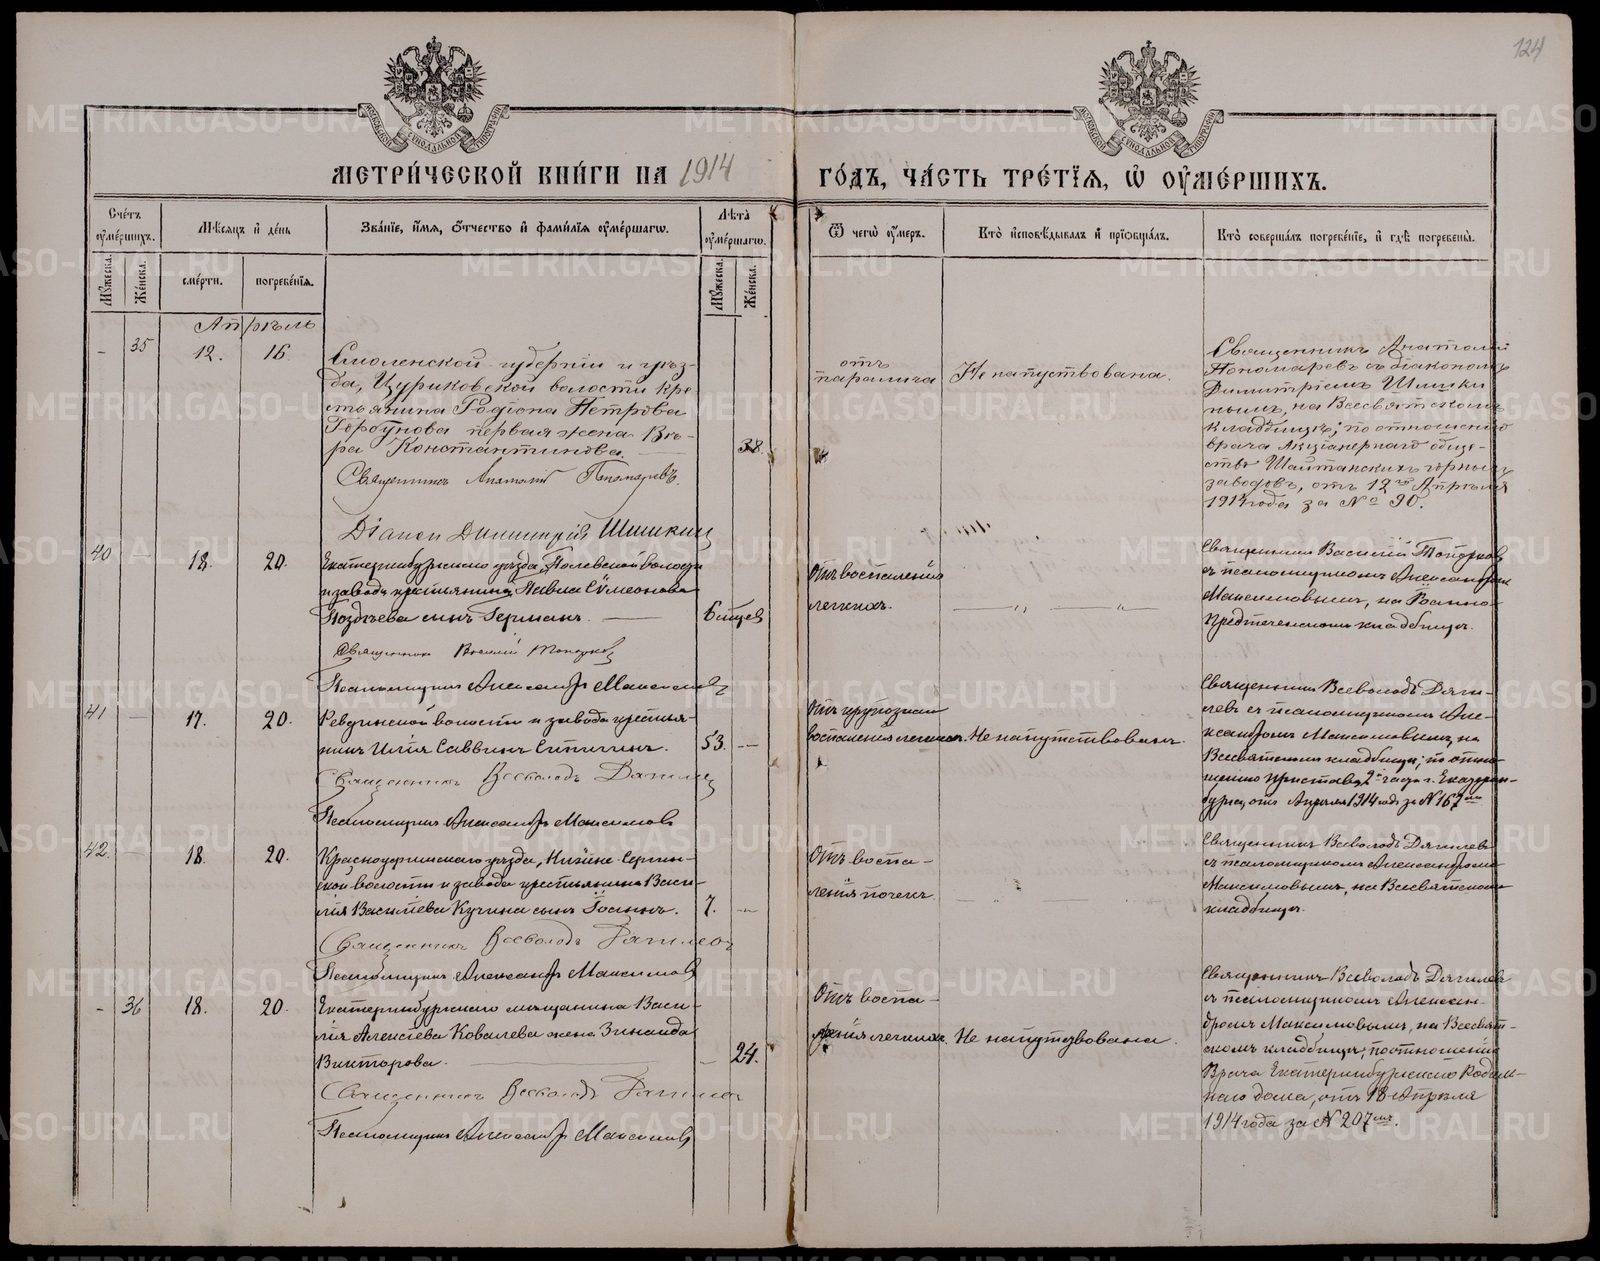 124
МОСКОВСКОЙ СѴНОДАЛЬНОЙ ТИПОГРАФІИ
МОСКОВСКОЙ СѴНОДАЛЬНОЙ ТИПОГРАФІИ
МЕТРИ́ЧЕСКОЙ КНИ́ГИ НА 1914 ГО́ДЪ, ЧА́СТЬ ТРЕ́ТІѦ, Ѡ҆ ОУ҆МЕ́РШИХЪ.
Счетъ оумершихъ.
Мѣсяцъ и день
Званіе, имя, отчество и фамилія оумершагѡ.
Лѣта оумершагѡ.
Ѿ чегѡ оумеръ.
Кто исповѣдывалъ и пріобщалъ.
Кто совершалъ погребеніе, и гдѣ погребены.
Мужеска.
Женска.
смерти.
погребенія.
Мужеска.
Женска.
Апрѣль
- 35 12. 16.
Смоленской губерніи и уѣз-
да, Цуриковской волости кре
стьянина Родіона Петрова
Горбунова первая жена Вѣ-
ра Константинова.
38.
Священникъ Анатолій Пономаревъ.
Діаконъ Димитрій Шишкин
отъ
паралича
Не напутствована.
Священникъ Анатолій
Пономаревъ съ діакономъ
Димитріемъ Шишки
нымъ, на Всесвятскомъ
кладбищѣ; по отношенію
врача Акціонернаго обще-
ства Шайтанскихъ горныхъ
заводовъ, отъ 12го Апрѣля
1914 года за № 90.
40 — 18. 20.
Екатеринбургскаго уѣзда, Полевской волости
и завода крестьянина Павла Сѵмеонова
Поздѣева сынъ Германъ.
6 мцев
Священникъ Василій Топорков
Псаломщикъ Александръ Максимовъ
Отъ воспаленія
легкихъ.
— „ — „
Священникъ Василій Топорков
съ псаломщикомъ Александром
Максимовымъ, на Іоанно-
Предтеченскомъ кладбищѣ.
41 — 17. 20.
Ревдинской волости и завода крестья-
нинъ Илія Саввинъ Ситигинъ.
53. —
Священникъ Всеволодъ Дягилев
Псаломщикъ Александръ Максимовъ
Отъ крупознаго
воспаленія легкихъ.
Не напутствованъ.
Священникъ Всеволодъ Дяги-
левъ съ псаломщикомъ Але-
ксандромъ Максимовымъ, на
Всесвятскомъ кладбищѣ; по отно-
шенію пристава 2й части г. Екатерин-
бурга, отъ Апрѣля 1914 года за № 167
42. — 18. 20.
Красноуфимскаго уѣзда, Нижне-Сергин-
ской волости и завода крестьянина Васи-
лія Васильева Кучина сынъ Іоаннъ.
7. —
Священникъ Всеволодъ Дягилевъ
Псаломщикъ Александръ Максимовъ
Отъ воспа-
ленія почекъ.
Священникъ Всеволодъ Дягилевъ
съ псаломщикомъ Александромъ
Максимовымъ, на Всесвятскомъ
кладбищѣ.
- 36 18. 20.
Екатеринбургскаго мѣщанина Васи-
лія Алексѣева Ковалева жена Зинаида
Викторова.
— 24.
Священникъ Всеволодъ Дягилев
Псаломщикъ Александръ Максимовъ
Отъ воспа-
ленія легкихъ.
Не напутствована.
Священникъ Всеволодъ Дягилевъ
съ псаломщикомъ Алексан-
дромъ Максимовымъ, на Всесвят-
скомъ кладбищѣ; по отношенію
Врача Екатеринбургскаго Родиль-
наго дома, отъ 18 Апрѣля
1914 года за № 207.
METRIKI.GASO-URAL.RU